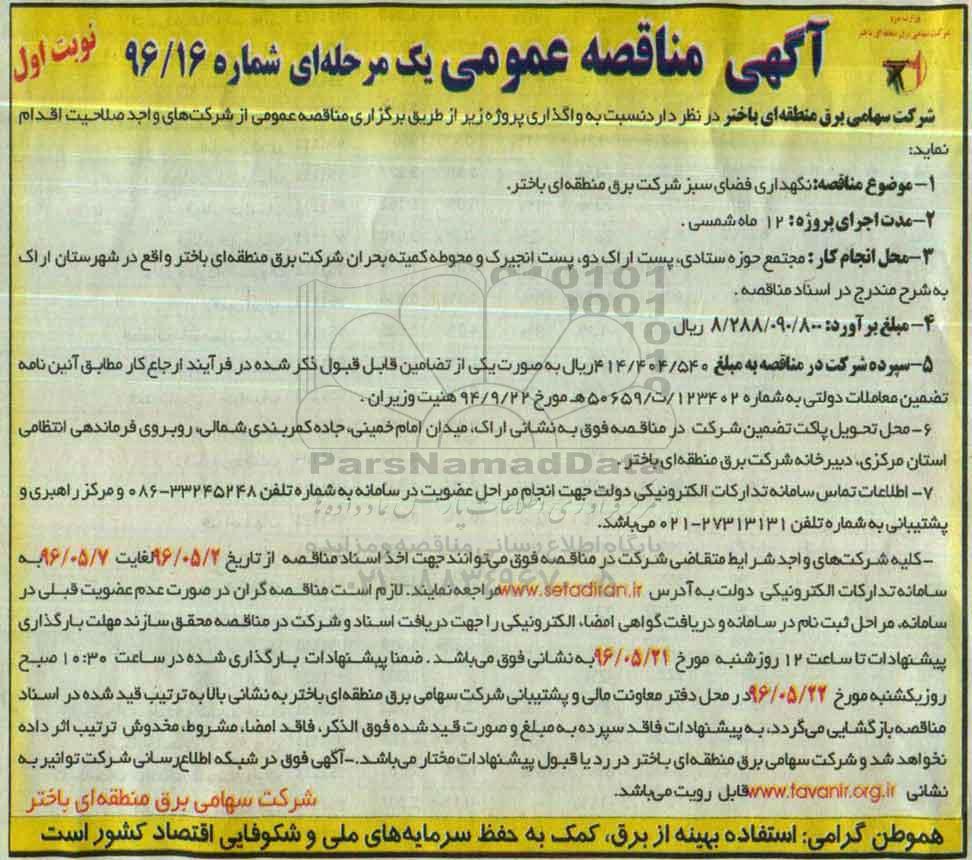 وزارت نیرو
شرکت سهامی برق منطقه ای باختر
آگهی مناقصه عمومی یک مرحله‌ای شماره ۹۶/۱۶
نوبت اول
شرکت سهامی برق منطقه‌ای باختر در نظر دارد نسبت به واگذاری پروژه زیر از طریق برگزاری مناقصه عمومی از شرکت‌های واجد صلاحیت اقدام
نماید:
۱-موضوع مناقصه: نگهداری فضای سبز شرکت برق منطقه‌ای باختر.
۲-مدت اجرای پروژه: ۱۲ ماه شمسی .
۳-محل انجام کار : مجتمع حوزه ستادی، پست اراک دو، پست انجیرک و محوطه کمیته بحران شرکت برق منطقه‌ای باختر واقع در شهرستان اراک
به شرح مندرج در اسناد مناقصه .
۴- مبلغ برآورد: ۸/۲۸۸/۰۹۰/۸۰۰ ریال
۵-سپرده شرکت در مناقصه به مبلغ ۴۱۴/۴۰۴/۵۴۰ریال به صورت یکی از تضامین قابل قبول ذکر شده در فرآیند ارجاع کار مطابق آئین نامه
تضمین معاملات دولتی به شماره ۱۲۳۴۰۲/ت/۵۰۶۵۹هـ مورخ ۹۴/۹/۲۲ هئیت وزیران .
۶- محل تحویل پاکت تضمین شرکت در مناقصه فوق به نشانی اراک، میدان امام خمینی، جاده کمربندی شمالی، روبروی فرماندهی انتظامی
استان مرکزی، دبیرخانه شرکت برق منطقه‌ای باختر .
ParsNamadData
۷- اطلاعات تماس سامانه تدارکات الکترونیکی دولت جهت انجام مراحل عضویت در سامانه به شماره تلفن ۳۳۲۴۵۲۴۸-۰۸۶ و مرکز راهبری و
پشتیبانی به شماره تلفن ۲۷۳۱۳۱۳۱-۰۲۱ می‌باشد.
پایگاه اطلاع رسانی مناقصه و مزایده
-کلیه شرکت‌های واجد شرایط متقاضی شرکت در مناقصه فوق می‌توانند جهت اخذ اسناد مناقصه از تاریخ ۹۶/۰۵/۲لغایت ۹۶/۰۵/۷به
سامانه تدارکات الکترونیکی دولت به آدرس www.setadiran.irمراجعه نمایند. لازم است مناقصه گران در صورت عدم عضویت قبلی در
سامانه، مراحل ثبت نام در سامانه و دریافت گواهی امضاء الکترونیکی را جهت دریافت اسناد و شرکت در مناقصه محقق سازند مهلت بارگذاری
پیشنهادات تا ساعت ۱۲ روز شنبه مورخ ۹۶/۰۵/۲۱به نشانی فوق می‌باشد . ضمنا پیشنهادات بارگذاری شده در ساعت ۱۰:۳۰ صبح
روز یکشنبه مورخ ۹۶/۰۵/۲۲در محل دفتر معاونت مالی و پشتیبانی شرکت سهامی برق منطقه‌ای باختر به نشانی بالا به ترتیب قید شده در اسناد
مناقصه بازگشایی می‌گردد، به پیشنهادات فاقد سپرده به مبلغ و صورت قید شده فوق الذکر، فاقد امضاء، مشروط، مخدوش ترتیب اثر داده
نخواهد شد و شرکت سهامی برق منطقه‌ای باختر در رد یا قبول پیشنهادات مختار می‌باشد.-آگهی فوق در شبکه اطلاع‌رسانی شرکت توانیر به
نشانی www.tavanir.org.irقابل رویت می‌باشد.
شرکت سهامی برق منطقه‌ای باختر
هموطن گرامی: استفاده بهینه از برق، کمک به حفظ سرمایه‌های ملی و شکوفایی اقتصاد کشور است